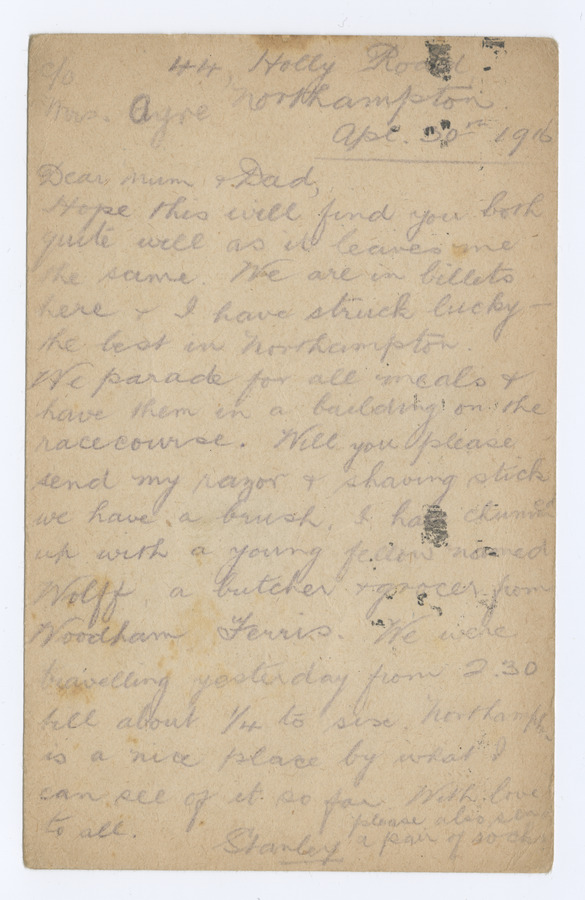 c/o 44, Holly Road
Mrs. Ayre Northampton.
Apl. 30th 1916
Dear Mum & Dad,
Hope this will find you both
quite well as it leaves me
the same. We are in billets
here & I have struck lucky –
the best in Northampton.
We parade for all meals &
have them in a building on the
racecourse. Will you please
send my razor & shaving stick
we have a brush. I have chummed
up with a young fellow named
Wolff, a butcher & grocer from
Woodham Ferris. We were
travelling yesterday from 2.30
till about 1/4 to six. Northampton
is a nice place by what I
can see of it so far. With love
to all. please also send
Stanley a pair of socks